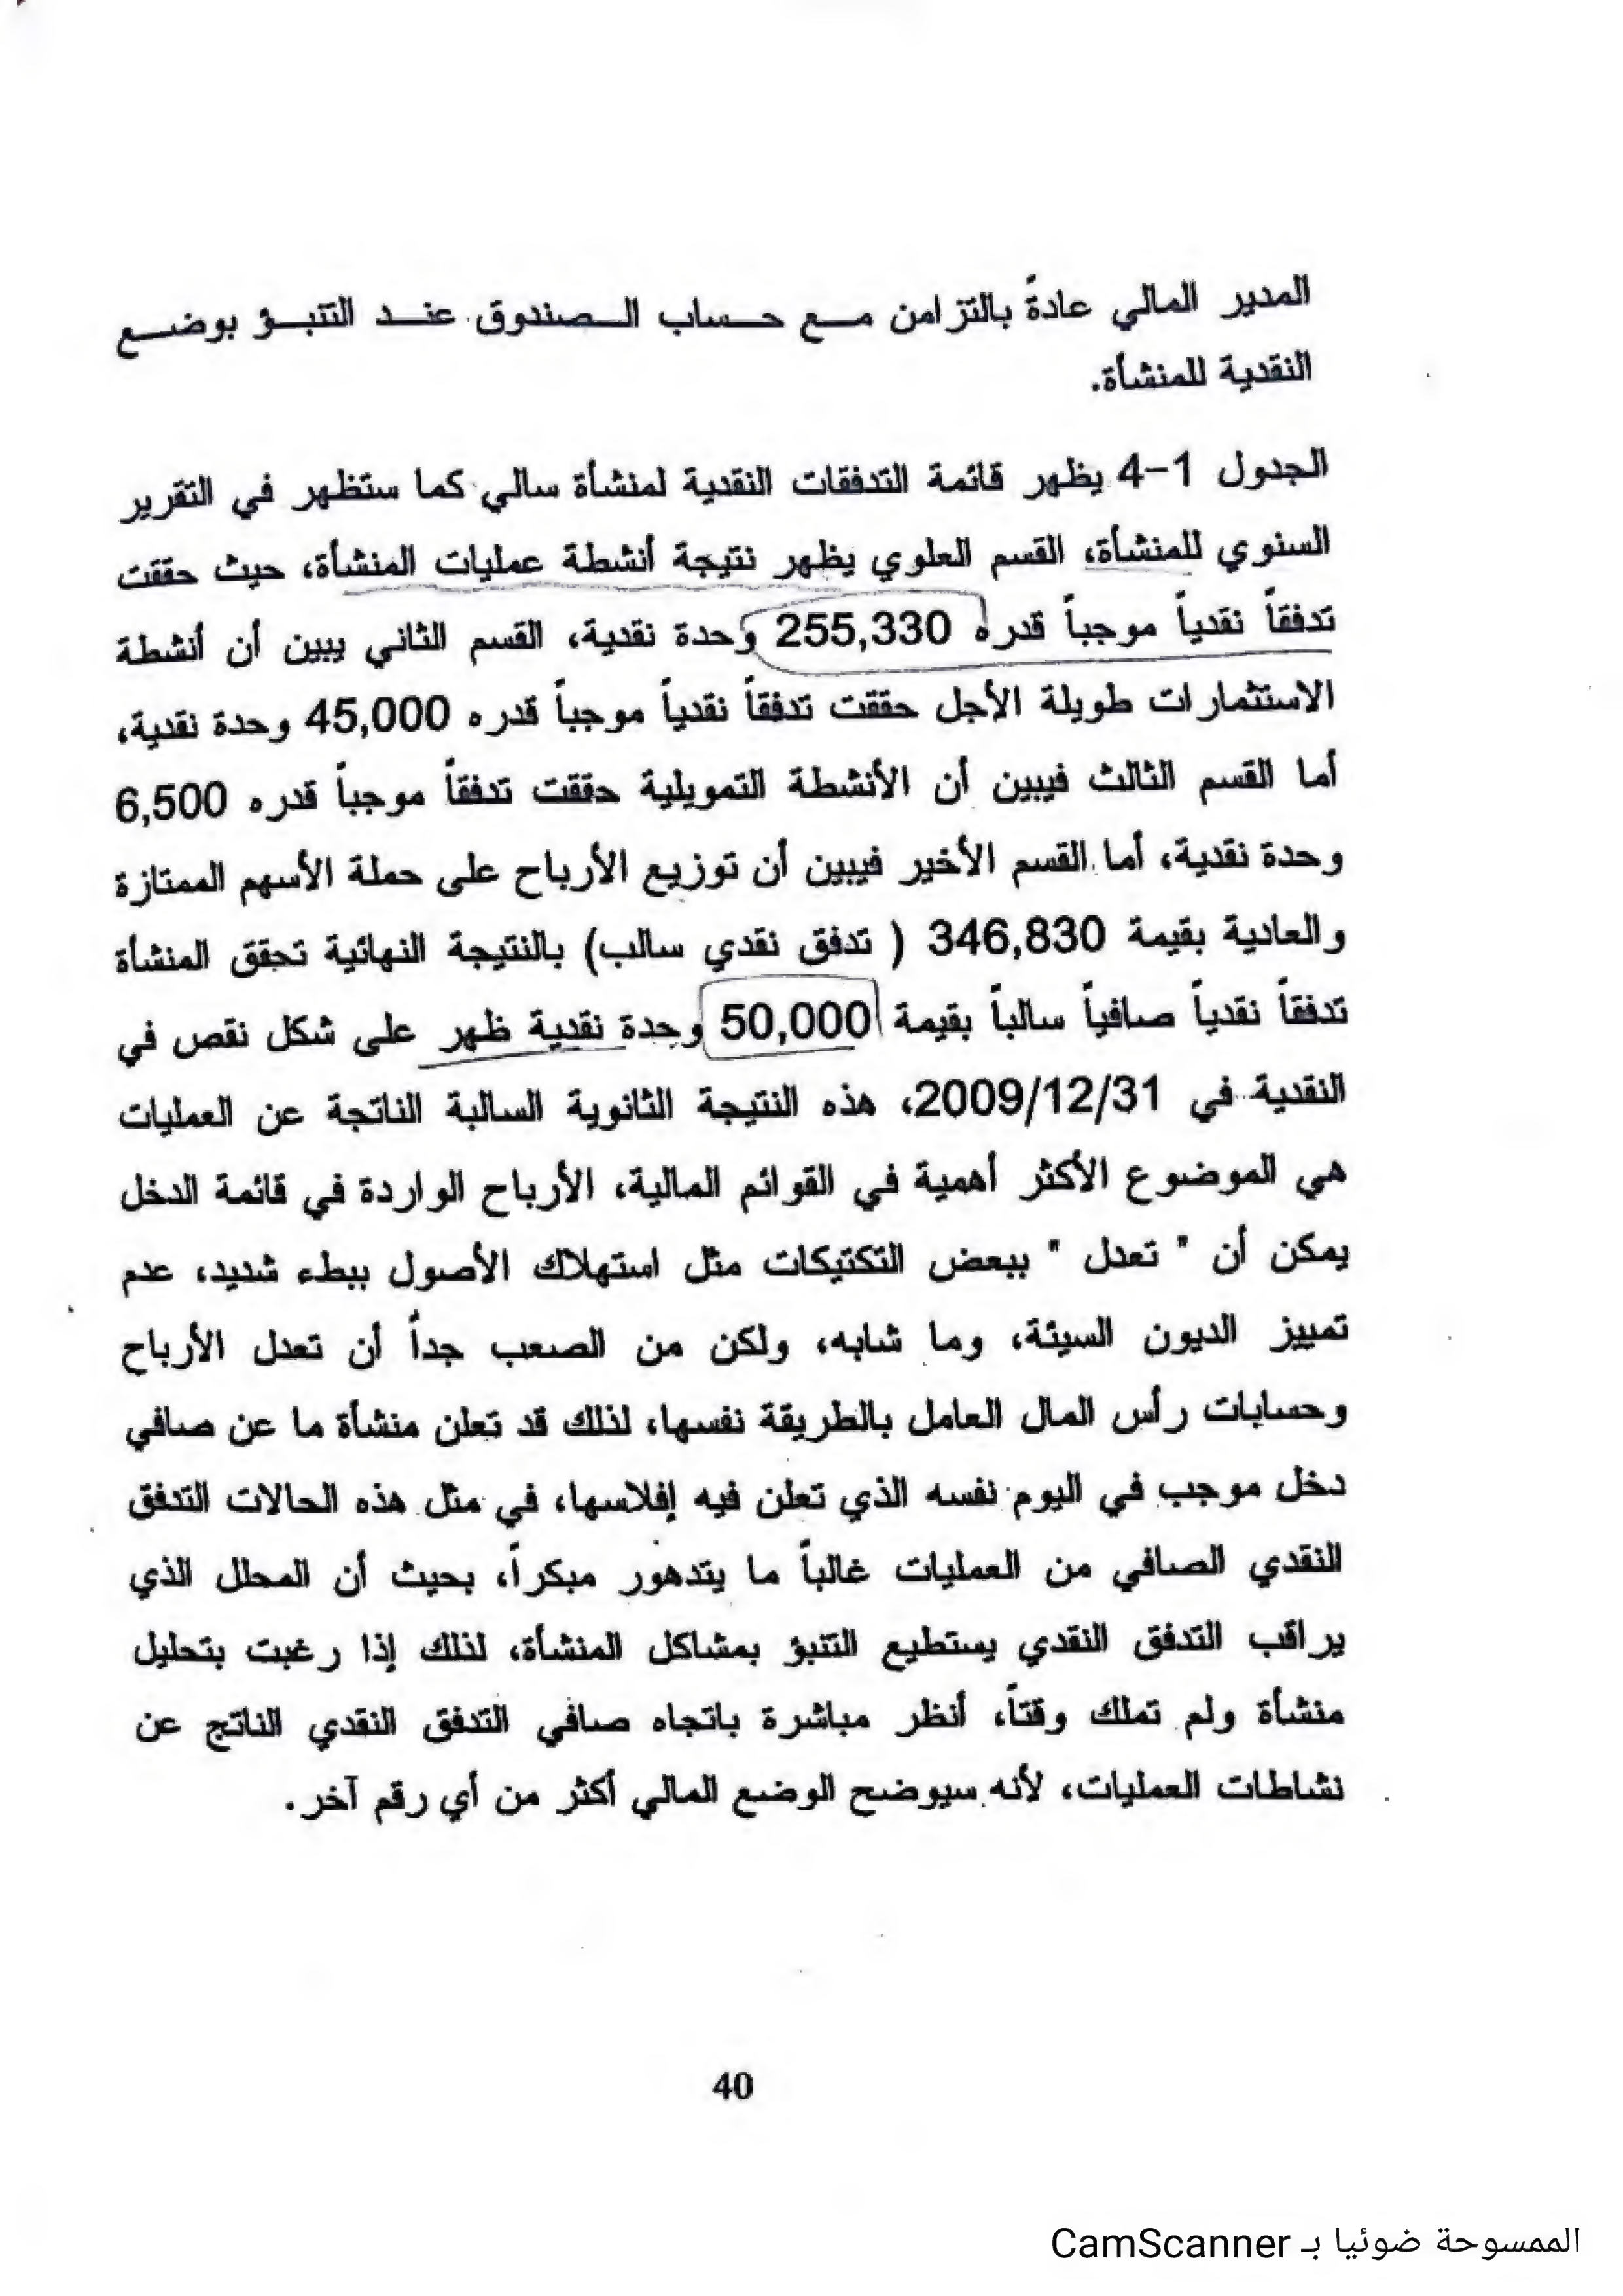 المدير المالي عادةً بالتزامن مع حساب الصندوق عند التنبؤ بوضع
النقدية للمنشأة.
الجدول 1-4 يظهر قائمة التدفقات النقدية لمنشأة سالي كما ستظهر في التقرير
السنوي للمنشأة، القسم العلوي يظهر نتيجة أنشطة عمليات المنشأة، حيث حققت
تدفقاً نقدياً موجباً قدره 255,330 وحدة نقدية، القسم الثاني يبين أن أنشطة
الاستثمارات طويلة الأجل حققت تدفقاً نقدياً موجباً قدره 45,000 وحدة نقدية،
أما القسم الثالث فيبين أن الأنشطة التمويلية حققت تدفقاً موجباً قدره 6,500
وحدة نقدية، أما القسم الأخير فيبين أن توزيع الأرباح على حملة الأسهم الممتازة
والعادية بقيمة 346,830 ( تدفق نقدي سالب) بالنتيجة النهائية تحقق المنشأة
تدفقاً نقدياً صافياً سالباً بقيمة 50,000 وحدة نقدية ظهر على شكل نقص في
النقدية في 2009/12/31، هذه النتيجة الثانوية السالبة الناتجة عن العمليات
هي الموضوع الأكثر أهمية في القوائم المالية، الأرباح الواردة في قائمة الدخل
يمكن أن " تعدل " ببعض التكتيكات مثل استهلاك الأصول ببطء شديد، عدم
تمييز الديون السيئة، وما شابه، ولكن من الصعب جداً أن تعدل الأرباح
وحسابات رأس المال العامل بالطريقة نفسها، لذلك قد تعلن منشأة ما عن صافي
دخل موجب في اليوم نفسه الذي تعلن فيه إفلاسها، في مثل هذه الحالات التدفق
النقدي الصافي من العمليات غالباً ما يتدهور مبكراً، بحيث أن المحلل الذي
يراقب التدفق النقدي يستطيع التنبؤ بمشاكل المنشأة، لذلك إذا رغبت بتحليل
منشأة ولم تملك وقتاً، أنظر مباشرة باتجاه صافي التدفق النقدي الناتج عن
نشاطات العمليات، لأنه سيوضح الوضع المالي أكثر من أي رقم آخر.
40
الممسوحة ضوئيا بـ CamScanner